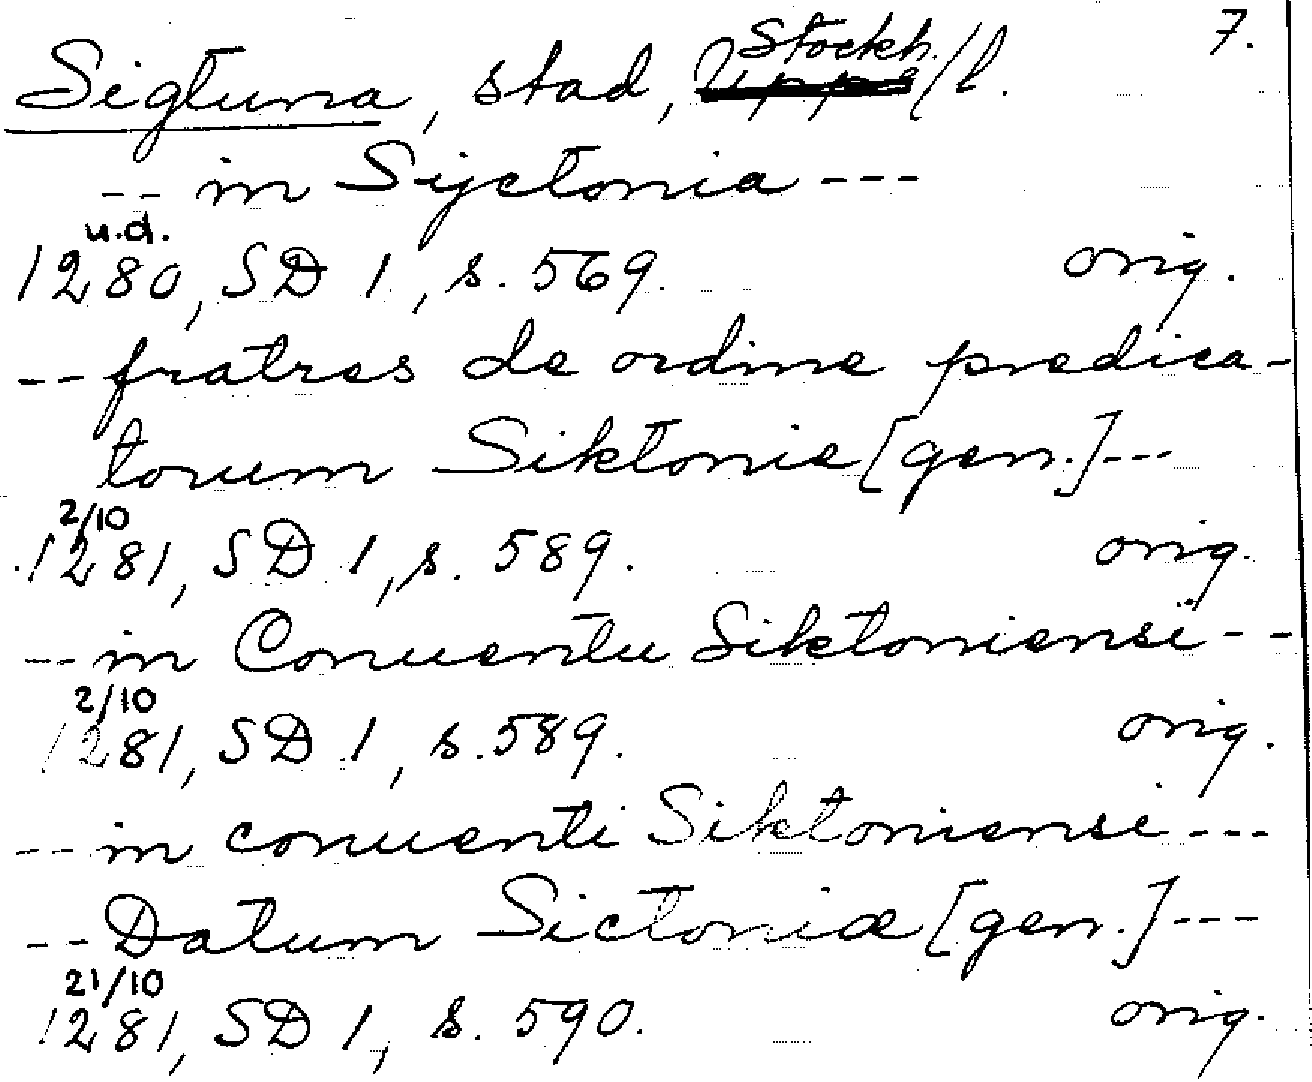 7.
Sigtuna, stad, Upps Stockh./l.
-- in Sijctonia ---
u.d.
1280, SD 1, s. 569. orig.
-- fratres de ordine predica-
torum Siktonie [gen.] ---
2/10
1281, SD 1, s. 589. orig.
-- in Conuentu Siktoniensi --
2/10
1281, SD 1, s. 589. orig.
-- in conuenti Siktoniensi ---
-- Datum Sictoniæ [gen.] ---
21/10
1281, SD 1, s. 590. orig.